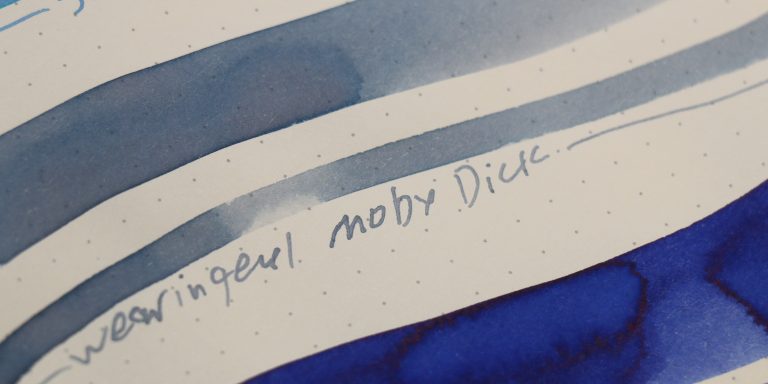 wearingeul moby Dick